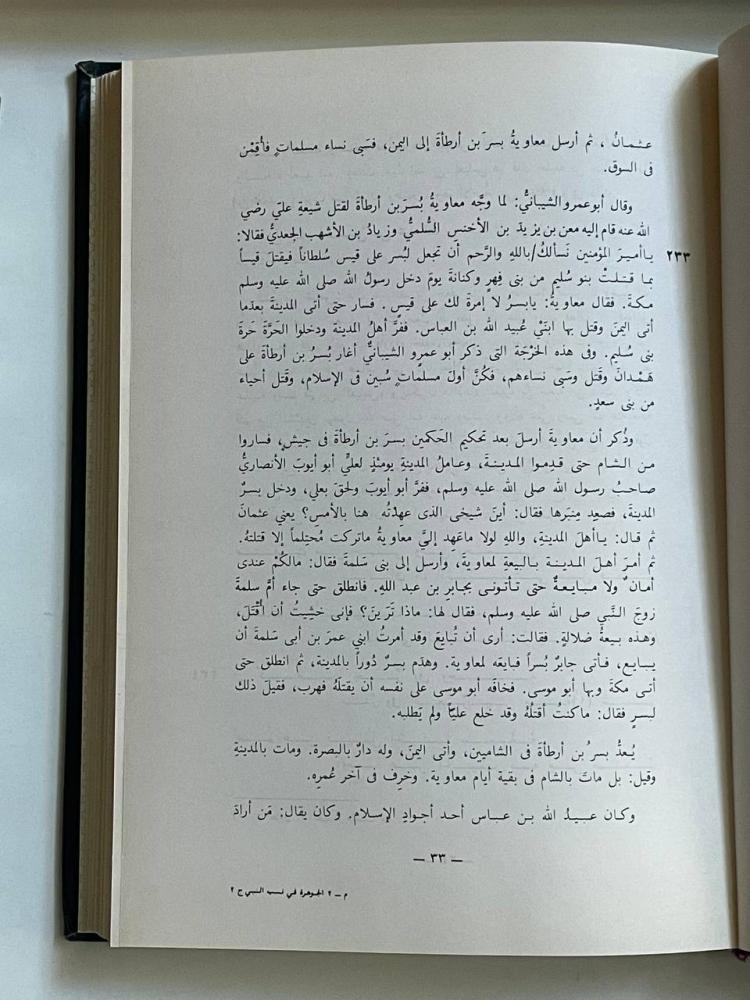 عثمانُ ، ثم أرسل معاويةُ بسرَ بن أرطأةَ إلى اليمن، فسَبى نساء مسلماتٍ فأُقِمْن
فى السوق.
وقال أبو عمرو الشيبانىُّ: لما وجَّه معاويةُ بُسرَ بن أرطأةَ لقتل شيعةِ عليّ رضي
الله عنه قام إليه معن بن يزيد بن الأخنس السُّلميُّ وزيادُ بن الأشهب الجعديُّ فقالا:
ياأميرَ المؤمنين نَسألكُ/بالله والرَّحم أن تجعل لبُسر على قيس سُلطاناً فيقتلَ قيساً
٢٣٣
بما قتلتْ بنو سُليم من بنى فِهرٍ وكنانةَ يومَ دخل رسولُ الله صلى الله عليه وسلم
مكةَ. فقال معاويةُ: يابسرُ لا إمرةَ لك على قيسٍ. فسار حتى أتى المدينةَ بعدما
أتى اليمنَ وقتل بها ابنَيْ عُبيد الله بن العباس. ففرَّ أهلُ المدينة ودخلوا الحَرَّةَ حَرةَ
بنى سُليم. وفى هذه الخَرْجَة التى ذكر أبو عمرو الشيبانىُّ أغار بُسرُ بن أرطأةَ على
هَمْدانَ وقَتل وسَبى نساءهم، فكُنَّ أولَ مسلماتٍ سُبين فى الإسلام، وقَتل أحياء
من بنى سعدٍ.
وذُكر أن معاويةَ أرسلَ بعد تحكيم الحَكمين بسرَ بن أرطأةَ فى جيشٍ، فساروا
من الشام حتى قدِموا المدينةَ، وعاملُ المدينةِ يومئذٍ لعليٍّ أبو أيوبَ الأنصاريُّ
صاحبُ رسول الله صلى الله عليه وسلم، ففرَّ أبو أيوبَ ولحقَ بعلي، ودخل بسرٌ
المدينةَ، فصعِد مِنبَرها فقال: أينَ شيخى الذى عهِدتُه هنا بالأمسِ؟ يعني عثمانَ
ثم قال: ياأهلَ المدينةِ، والله لولا ماعَهِد إليَّ معاويةُ ماتركت مُحتِلماً إلا قتلتهُ.
ثم أمرَ أهلَ المدينة بالبيعةِ لمعاويةَ، وأرسل إلى بنى سَلمةَ فقال: مالكُمْ عندى
أمانٌ ولا مبايعةٌ حتى تأتونى بجابر بن عبد اللهِ. فانطلق حتى جاء أمَّ سلمةَ
زوجَ النَّبي صلى الله عليه وسلم، فقال لها: ماذا تَرَينَ؟ فإنى خشِيتُ أن أُقْتلَ،
وهذه بيعةُ ضلالةٍ. فقالت: أرى أن تُبايعَ وقد أمرتُ ابني عمرَ بن أبى سَلمةَ أن
يبايع، فأتى جابرٌ بُسراً فبايعَه لمعاوية. وهدَم بسرٌ دُوراً بالمدينة، ثم انطلق حتى
أتى مكةَ وبها أبو موسى. فخافَه أبو موسى على نفسه أن يقتلَهُ فهرب، فقيلَ ذلك
لبسرٍ فقال: ماكنتُ أقتلهُ وقد خلع عليّاً ولم يَطلبه.
يُعدُّ بسرُ بن أرطأةَ فى الشاميين، وأتى اليمنَ، وله دارٌ بالبصرة. ومات بالمدينةِ
وقيل: بل ماتَ بالشام فى بقية أيام معاوية. وخرِف فى آخر عُمرِه.
وكان عبيدُ الله بن عباس أحد أجوادِ الإسلام. وكان يقال: مَن أرادَ
— ٣٣ —
م – ٢ الجوهرة في نسب النبي ج ٢